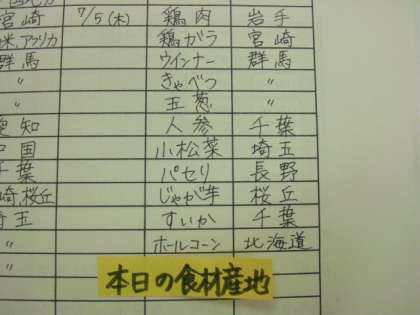 宮崎 7/5(木) 鶏肉 岩手
米、アメリカ 鶏ガラ 宮崎
群馬 ウインナー 群馬
〃 きゃべつ 〃
〃 玉葱 〃
愛知 人参 千葉
中国 小松菜 埼玉
千葉 パセリ 長野
崎、桜丘 じゃが芋 桜丘
埼玉 すいか 千葉
〃 ホールコーン 北海道
〃
本日の食材産地